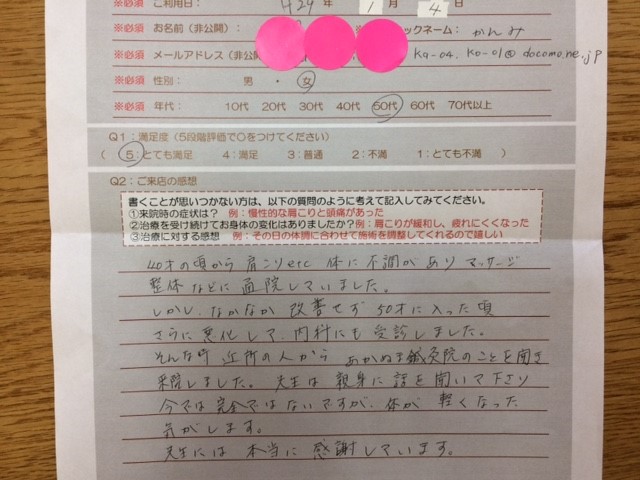 ※必須 ご利用日： H29 年 1 月 4 日
※必須 お名前（非公開） ックネーム： かんみ
※必須 メールアドレス（非公開 ka-04.ko-01@docomo.ne.jp
※必須 性別： 男 ・ 女
※必須 年代： 10代 20代 30代 40代 50代 60代 70代以上
Q1：満足度（5段階評価で○をつけてください）
（ 5：とても満足 4：満足 3：普通 2：不満 1：とても不満 ）
Q2：ご来店の感想
書くことが思いつかない方は、以下の質問のように考えて記入してみてください。
①来院時の症状は？ 例：慢性的な肩こりと頭痛があった
②治療を受け続けてお身体の変化はありましたか？例：肩こりが緩和し、疲れにくくなった
③治療に対する感想 例：その日の体調に合わせて施術を調整してくれるので嬉しい
40才の頃から 肩こりetc 体に不調があり マッサージ
整体などに 通院していました。
しかし、なかなか 改善せず 50才に入った頃
さらに悪化して、内科にも 受診しました。
そんな時 近所の人から あかぬま鍼灸院のことを聞き
来院しました。 先生は 親身に 話を聞いて下さり
今では完全ではないですが、体が 軽くなった
気がします。
先生には 本当に 感謝しています。